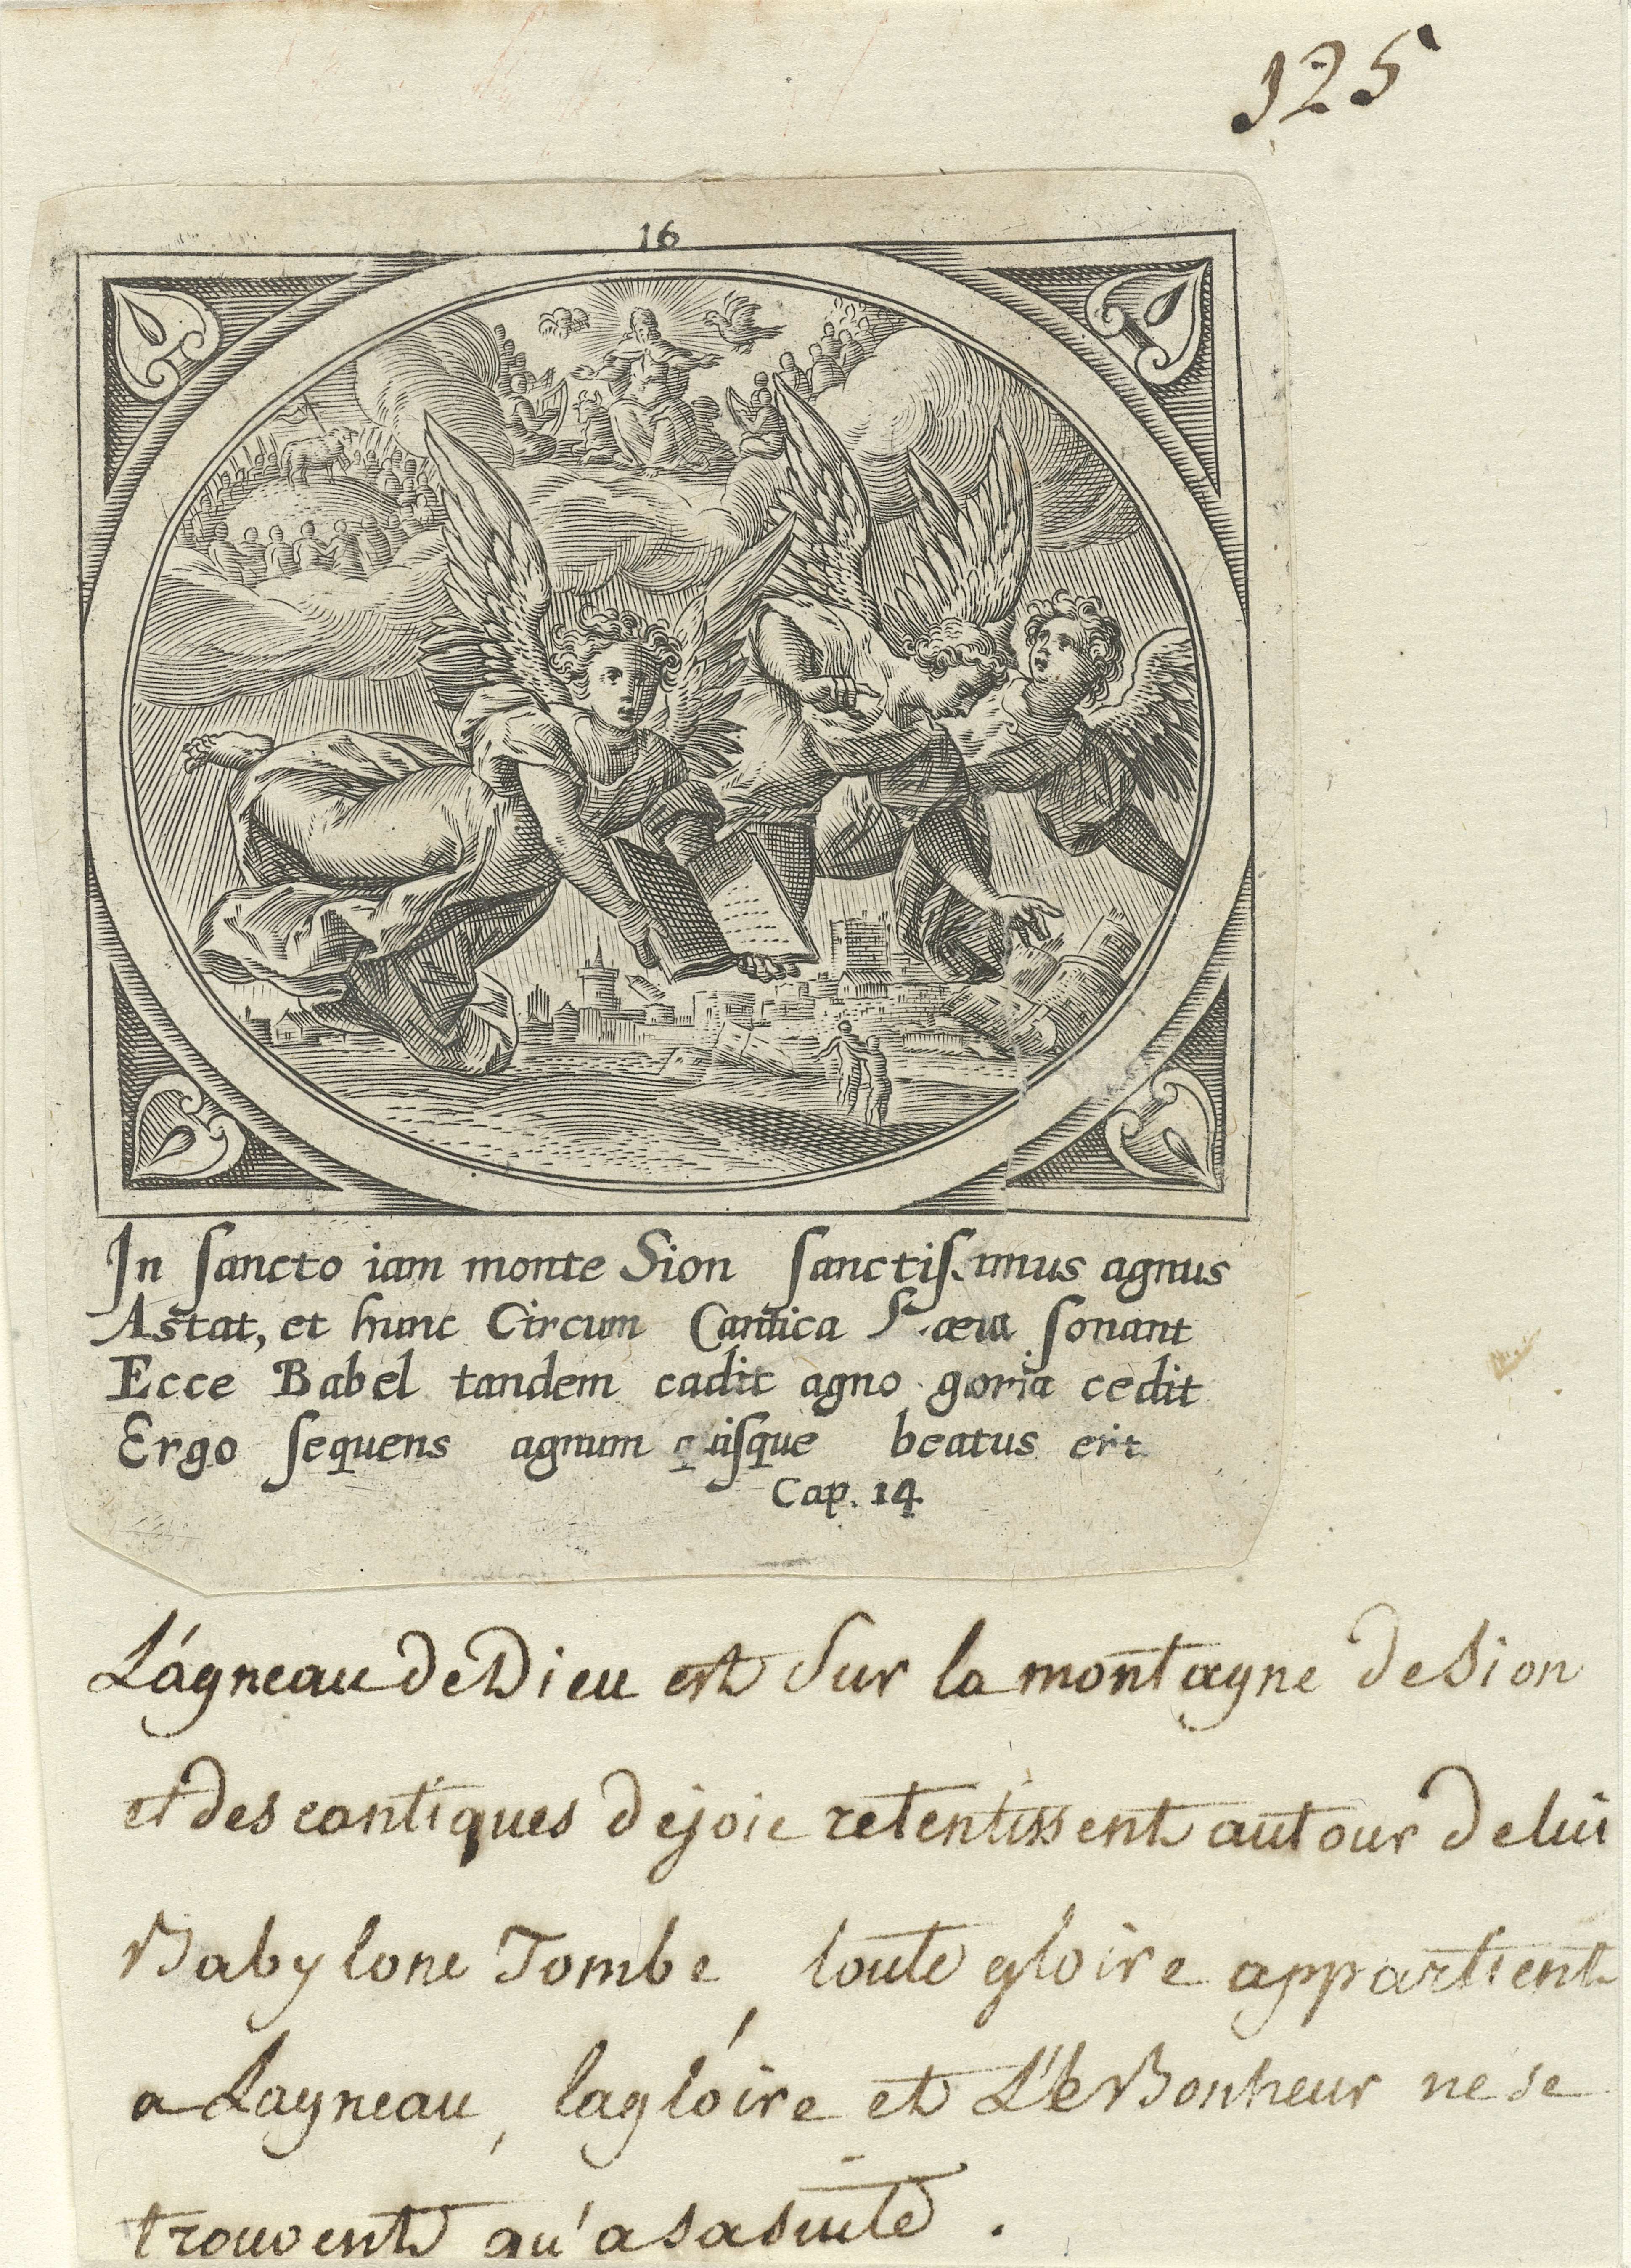 125
16
In sancto iam monte Sion sanctissimus agnus
Astat, et hunc Circum Cantica sonant
Ecce Babel tandem cadit agno gloria cedit
Ergo sequens agnum quisque beatus erit
Cap. 14
L'agneau de Dieu est sur la montagne de Sion
et des cantiques de joie retentissent autour de lui
Babylone Tombe, toute gloire appartient
a Lagneau, la gloire et Le Bonheur ne se
trouvent qu'a sa suite.